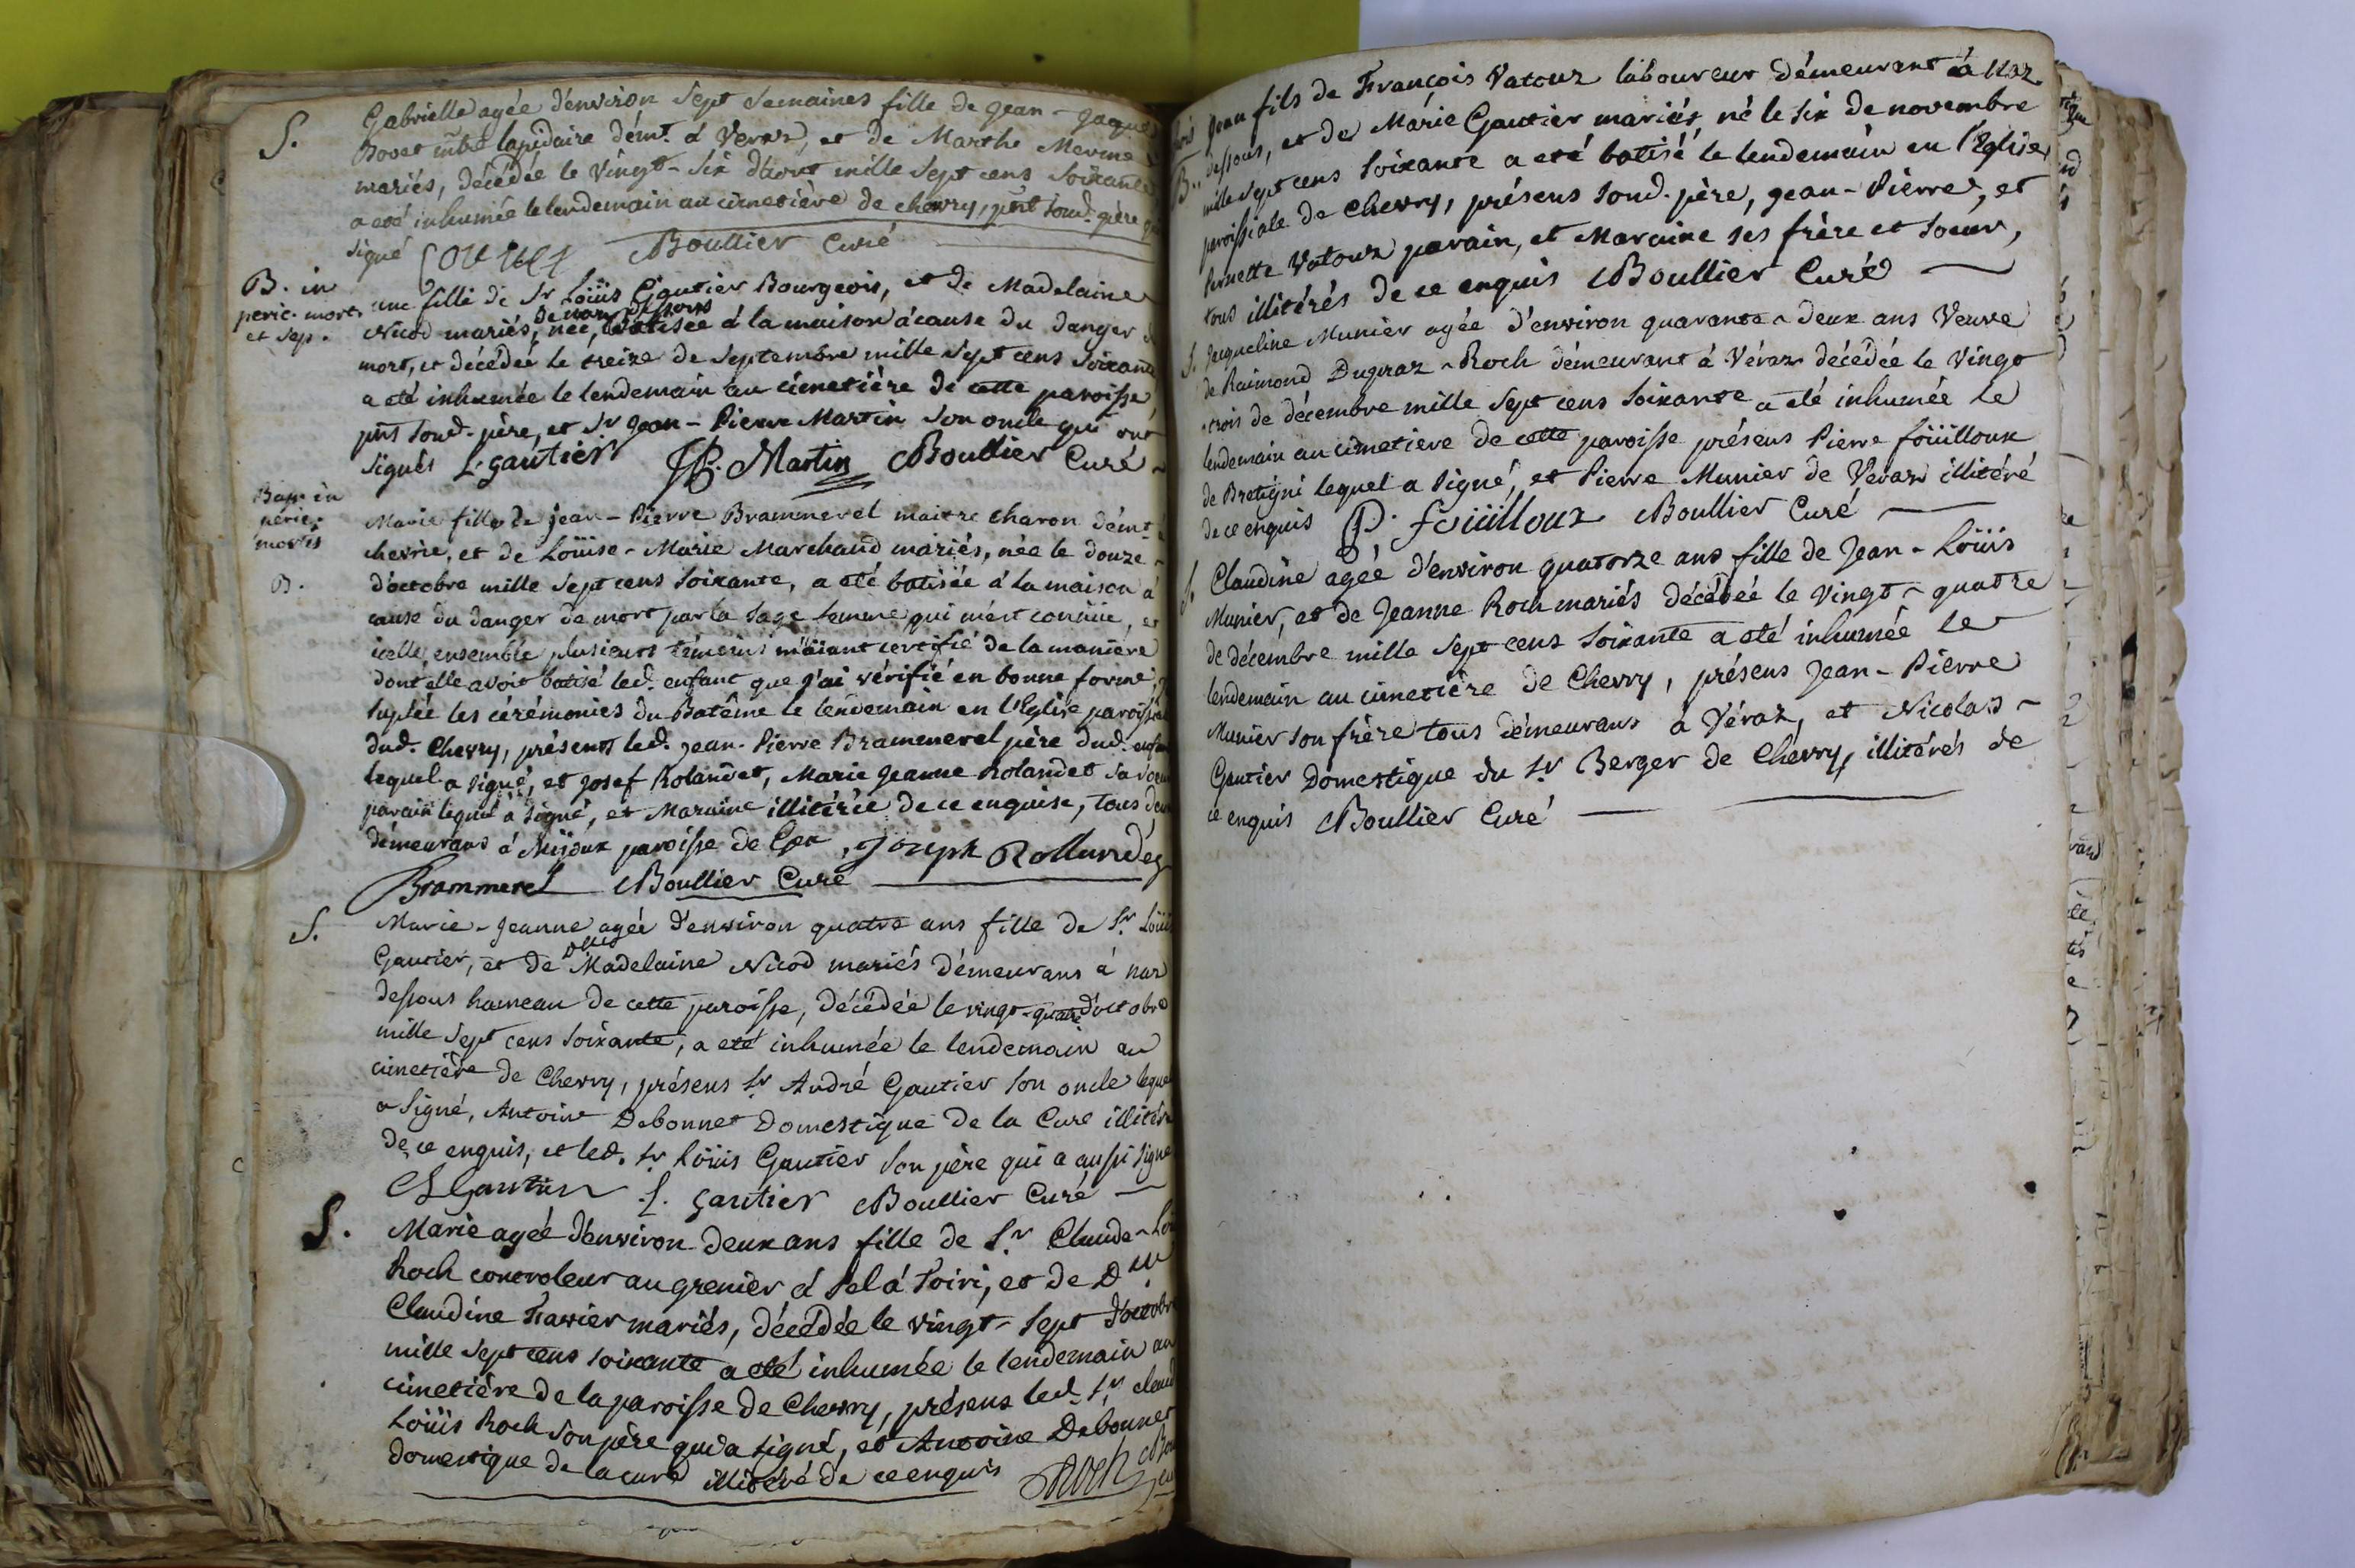 S. Gabrielle agée d'environ Sept Semaines fille de Jean-Jaque
Bovet mtre lapidaire démt. à Veraz, et de Marthe Mermet
mariés, décédée le Vingt-Six d'aout mille Sept cens Soixante
a eté inhumée le lendemain au cimetière de Chevry, pnt Soud. père
Signé Boullier Curé
B. in une fille de Sr Loüis Gautier Bourgeois, et de Madelaine
peric. mortis Nicod mariés, de naz dessous née, batisée à la maison àcause du danger
et Sep. mort, et décédée le treize de Septembre mille Sept cens Soixante
a eté inhumée le lendemain au cimetière de cette paroisse
pnt Soud. père, et Sr Jean-Pierre Martin Son oncle qui ont
Signés L. gautier JP. Martin Boullier Curé
Bapt. in
peric. Marie fille de jean-Pierre Brammerel maitre charon démt.
mortis chevrie, et de Loüise-Marie Marchand mariés, née le douze
B. d'octobre mille Sept cens Soixante, a eté batisée à la maison à
cause du danger de mort par la Sage femme qui m'est connüe, et
icelle, ensemble plusieurs témoins m'äiant certifié de la manière
dont elle avoit batisé led. enfant que j'ai vérifié en bonne forme,
Suplée les cérémonies du Batême le lendemain en l'Eglise paroissiale
dud. Chevry, présents led. jean-Pierre Brammerel père dud. enfant
lequel a Signé, et Josef Rolandet, Marie Jeanne Rolandet Sa Soeur
parain lequel a Signé, et Maraine illitérée de ce enquise, tous deux
démeurans à Mijoux paroisse de Gex, Joseph Rollandéz
Brammerel Boullier Curé
S. Marie-Jeanne agée d'environ quatre ans fille de Sr. Loüis
Gautier, et de dlle Madelaine Nicod mariés démeurans à naz
dessous hameau de cette paroisse, décédée le vingt-quatre d'octobre
mille Sept cens Soixante, a eté inhumée le lendemain au
cimetière de Chevry, présens Sr. André Gautier Son oncle lequel
a Signé, Antoine Debonnet Domestique de la Cure illitéré
de ce enquis, et led. Sr Loüis Gautier Son père qui a aussi Signé
Gautier L. gautier Boullier Curé
S. Marie agée d'environ deux ans fille de Sr. Claude-Loüis
Roch controleur au grenier à Sel à Toiri, et de Dlle
Claudine Favier mariés, décédée le vingt-Sept d'octobre
mille Sept cens Soixante a eté inhumée le lendemain au
cimetière de la paroisse de Chevry, présens led. Sr. claude
Loüis Roch Son père qui a Signé, et Antoine Debonnet
domestique de la cure illitéré de ce enquis Roch
Jean fils de François Vatoux laboureur démeurant à Naz
B. dessous, et de Marie Gautier mariés, né le Six de novembre
mille Sept cens Soixante a eté batisé le lendemain en l'Eglise
paroissiale de Chevry, présens Soud. père, Jean-Pierre, et
Vatoux parain, et Maraine Ses frère et Soeur,
tous illitérés de ce enquis Boullier Curé
S. Jacqueline Munier agée d'environ quarante-deux ans Veuve
de Raimond Dugraz-Roch démeurant à Véraz décédée le Vingt
trois de décembre mille Sept cens Soixante a eté inhumée le
lendemain au cimetiere de cette paroisse présens Pierre foüilloux
de Bretigni lequel a Signé, et Pierre Munier de Veraz illitéré
de ce enquis P. foüilloux Boullier Curé
S. Claudine agée d'environ quatorze ans fille de Jean-Loüis
Munier, et de Jeanne Roch mariés décédée le Vingt-quatre
de décembre mille Sept cens Soixante a eté inhumée le
lendemain au cimetière de Chevry, présens Jean-Pierre
Munier Son frère tous démeurans à Véraz, et Nicolas
Gautier Domestique du Sr Berger de Chevry, illitérés de
ce enquis Boullier Curé